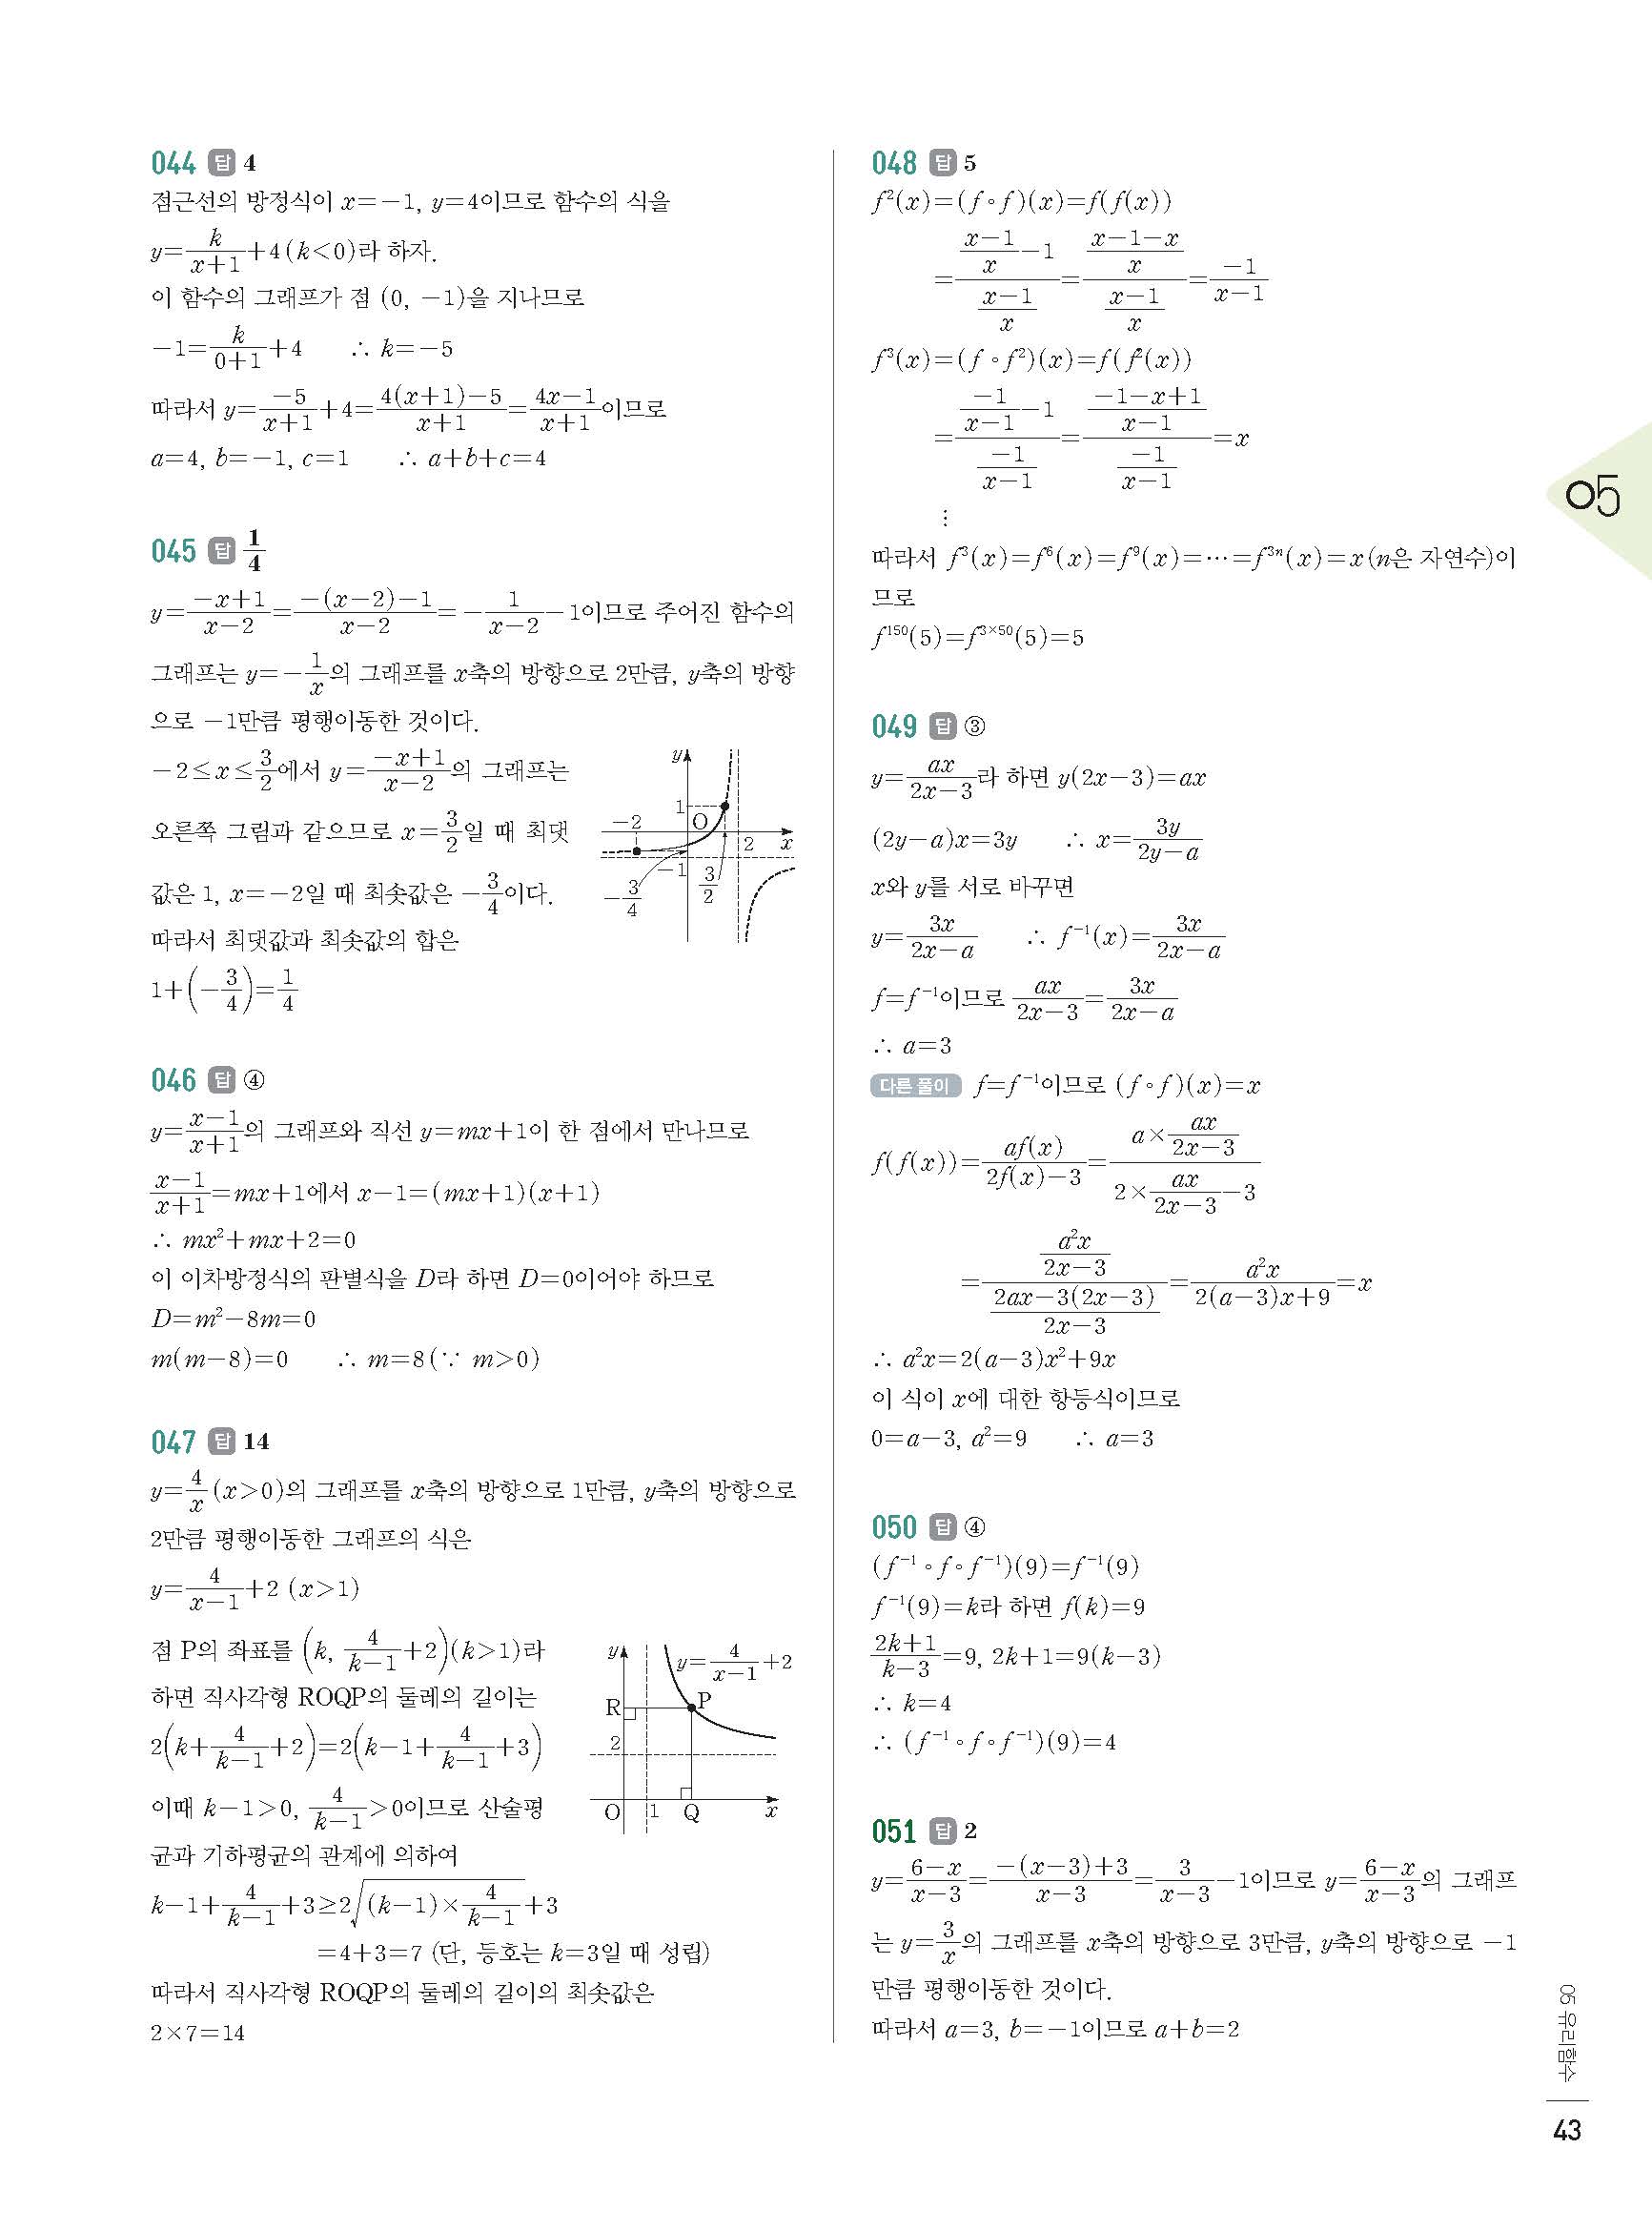 044 답 4
점근선의 방정식이 x=-1, y=4이므로 함수의 식을
y=k/(x+1)+4(k<0)라 하자.
이 함수의 그래프가 점 (0, -1)을 지나므로
-1=k/(0+1)+4 ∴ k=-5
따라서 y=-5/(x+1)+4=(4(x+1)-5)/(x+1)=(4x-1)/(x+1)이므로
a=4, b=-1, c=1 ∴ a+b+c=4
045 답 1/4
y=(-x+1)/(x-2)=(-(x-2)-1)/(x-2)=-1/(x-2)-1이므로 주어진 함수의
그래프는 y=-1/x의 그래프를 x축의 방향으로 2만큼, y축의 방향
으로 -1만큼 평행이동한 것이다.
-2≤x≤3/2에서 y=(-x+1)/(x-2)의 그래프는
오른쪽 그림과 같으므로 x=3/2일 때 최댓
값은 1, x=-2일 때 최솟값은 -3/4이다.
따라서 최댓값과 최솟값의 합은
1+(-3/4)=1/4
y
1
-2 O 2 x
-1
-3/4 3/2
046 답 ④
y=(x-1)/(x+1)의 그래프와 직선 y=mx+1이 한 점에서 만나므로
(x-1)/(x+1)=mx+1에서 x-1=(mx+1)(x+1)
∴ mx²+mx+2=0
이 이차방정식의 판별식을 D라 하면 D=0이어야 하므로
D=m²-8m=0
m(m-8)=0 ∴ m=8(∵ m>0)
047 답 14
y=4/x (x>0)의 그래프를 x축의 방향으로 1만큼, y축의 방향으로
2만큼 평행이동한 그래프의 식은
y=4/(x-1)+2 (x>1)
점 P의 좌표를 (k, 4/(k-1)+2)(k>1)라
하면 직사각형 ROQP의 둘레의 길이는
2(k+4/(k-1)+2)=2(k-1+4/(k-1)+3)
이때 k-1>0, 4/(k-1)>0이므로 산술평
균과 기하평균의 관계에 의하여
k-1+4/(k-1)+3≥2√((k-1)×4/(k-1))+3
=4+3=7 (단, 등호는 k=3일 때 성립)
따라서 직사각형 ROQP의 둘레의 길이의 최솟값은
2×7=14
y
y=4/(x-1)+2
R P
2
O 1 Q x
048 답 5
f²(x)=(f∘f)(x)=f(f(x))
=((x-1)/x-1)/((x-1)/x)=((x-1-x)/x)/((x-1)/x)=-1/(x-1)
f³(x)=(f∘f²)(x)=f(f²(x))
=(-1/(x-1)-1)/(-1/(x-1))=((-1-x+1)/(x-1))/(-1/(x-1))=x
⋮
따라서 f³(x)=f⁶(x)=f⁹(x)=⋯=f³ⁿ(x)=x(n은 자연수)이
므로
f¹⁵⁰(5)=f³ˣ⁵⁰(5)=5
049 답 ③
y=ax/(2x-3)라 하면 y(2x-3)=ax
(2y-a)x=3y ∴ x=3y/(2y-a)
x와 y를 서로 바꾸면
y=3x/(2x-a) ∴ f⁻¹(x)=3x/(2x-a)
f=f⁻¹이므로 ax/(2x-3)=3x/(2x-a)
∴ a=3
다른 풀이 f=f⁻¹이므로 (f∘f)(x)=x
f(f(x))=af(x)/(2f(x)-3)=(a×ax/(2x-3))/(2×ax/(2x-3)-3)
=(a²x/(2x-3))/((2ax-3(2x-3))/(2x-3))=a²x/(2(a-3)x+9)=x
∴ a²x=2(a-3)x²+9x
이 식이 x에 대한 항등식이므로
0=a-3, a²=9 ∴ a=3
050 답 ④
(f⁻¹∘f∘f⁻¹)(9)=f⁻¹(9)
f⁻¹(9)=k라 하면 f(k)=9
(2k+1)/(k-3)=9, 2k+1=9(k-3)
∴ k=4
∴ (f⁻¹∘f∘f⁻¹)(9)=4
051 답 2
y=(6-x)/(x-3)=(-(x-3)+3)/(x-3)=3/(x-3)-1이므로 y=(6-x)/(x-3)의 그래프
는 y=3/x의 그래프를 x축의 방향으로 3만큼, y축의 방향으로 -1
만큼 평행이동한 것이다.
따라서 a=3, b=-1이므로 a+b=2
05
05 유리함수
43